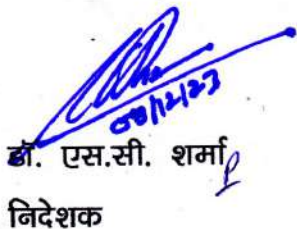 08/12/23
डॉ. एस.सी. शर्मा
निदेशक